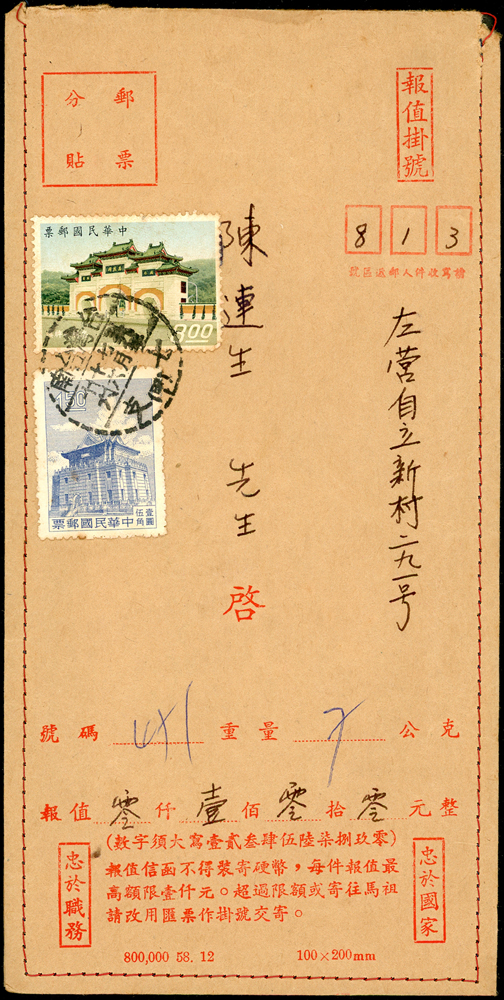 報值掛號
郵票
分貼
8 1 3
請寫收件人郵遞區號
左營自立新村二九一号
陳連生 先生 啓
中華民國郵票
8.00
1.50
中華民國郵票
壹圓伍角
號碼 重量 公克
報值 零 仟 壹 佰 零 拾 零 元整
(數字須大寫壹貳叁肆伍陸柒捌玖零)
報值信函不得裝寄硬幣,每件報值最
高額限壹仟元。超過限額或寄往馬祖
請改用匯票作掛號交寄。
忠於國家
忠於職務
800,000 58. 12 100×200mm